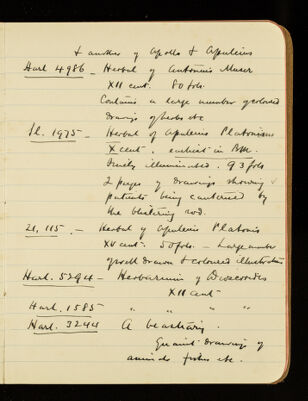 & another of Apollo & Apuleius
Harl 4986 - Herbal of Antonius Musar
XII cent. 80 fols.
Contains a large number of coloured
drawings of herbs etc
Sl. 1975 - Herbal of Apuleius Platonicus
X cent. earliest in B.M.
finely illuminated. 93 fols
2 pages of drawings showing
patients being cauterised by
the blistering rod.
21,115 - Herbal of Apuleius Platonis
XV cent. 50 fols. - Large number
of well drawn & coloured illustrations
Harl. 5294 - Herbarium of Dioscorides
XII cent
Harl. 1585 " " " "
Harl. 3244 A beastiary.
Quaint drawings of
animals fishes etc.